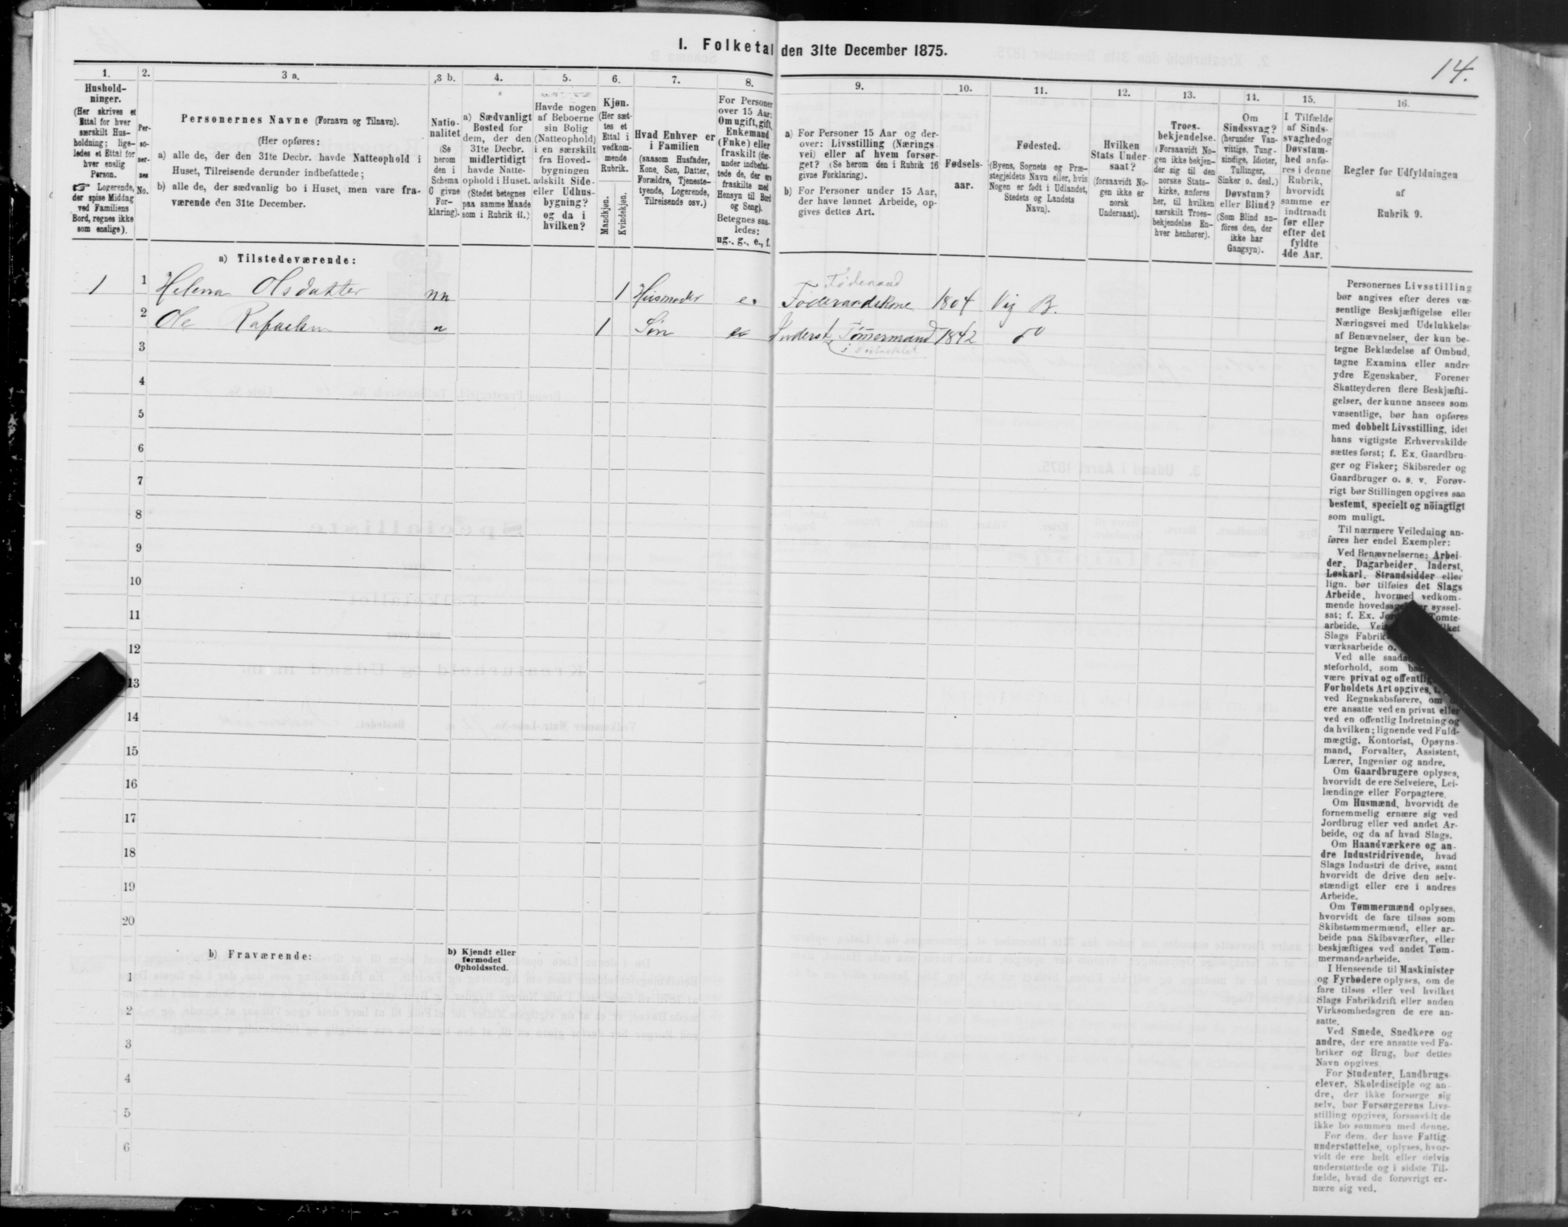 I. Folketal den 31te December 1875.
14.
1.
Hushold-
ninger.
(Her skrives et
Ettal for hver
særskilt Hus-
holdning; lige-
ledes et Ettal for
hver enslig
Person.
☞ Logerende,
der spise Middag
ved Familiens
Bord, regnes ikke
som enslige).
2.
Per-
so-
ner-
nes
No.
3 a.
Personernes Navne (Fornavn og Tilnavn).
(Her opføres:
a) alle de, der den 31te Decbr. havde Natteophold i
Huset, Tilreisende derunder indbefattede;
b) alle de, der sædvanlig bo i Huset, men vare fra-
værende den 31te December.
3 b.
Natio-
nalitet
(Se
herom
den i
Schema
C givne
For-
klaring).
4.
a) Sædvanligt
Bosted for
dem, der den
31te Decbr.
midlertidigt
havde Natte-
ophold i Huset.
(Stedet betegnes
paa samme Maade
som i Rubrik 11.)
5.
Havde nogen
af Beboerne
sin Bolig
(Natteophold)
i en særskilt
fra Hoved-
bygningen
adskilt Side-
eller Udhus-
bygning?
og da i
hvilken?
6.
Kjøn.
(Her sæt-
tes et
Ettal i
vedkom-
mende
Rubrik.
Mandkjøn.
Kvindekjøn.
7.
Hvad Enhver er
i Familien
(saasom Husfader,
Kone, Søn, Datter,
Forældre, Tjeneste-
tyende, Logerende,
Tilreisende osv.)
8.
For Personer
over 15 Aar:
Om ugift, gift,
Enkemand
(Enke) eller
fraskilt (der-
under indbefat-
tede de, der ere
fraskilte med
Hensyn til Bord
og Seng).
Betegnes saa-
ledes:
ug., g., e., f.
9.
a) For Personer 15 Aar og der-
over: Livsstilling (Nærings
vei) eller af hvem forsør-
get? (Se herom den i Rubrik 16
givne Forklaring).
b) For Personer under 15 Aar,
der have lønnet Arbeide, op-
gives dettes Art.
10.
Fødsels-
aar.
11.
Fødested.
(Byens, Sognets og Præ-
stegjeldets Navn eller, hvis
Nogen er født i Udlandet,
Stedets og Landets
Navn).
12.
Hvilken
Stats Under-
saat?
(forsaavidt No-
gen ikke er
norsk
Undersaat).
13.
Troes-
bekjendelse.
(Forsaavidt No-
gen ikke bekjen-
der sig til den
norske Stats-
kirke, anføres
her, til hvilken
særskilt Troes-
bekjendelse En-
hver henhører).
14.
Om
Sindssvag?
(herunder Van-
vittige, Tung-
sindige, Idioter,
Tullinger,
Sinker o. desl.)
Døvstum?
eller Blind?
(Som Blind an-
føres den, der
ikke har
Gangsyn).
15.
I Tilfælde
af Sinds-
svaghed og
Døvstum-
hed anfø-
res i denne
Rubrik,
hvorvidt
samme er
indtraadt
før eller
efter det
fyldte
4de Aar.
16.
Regler for Udfyldningen
af
Rubrik 9.
a) Tilstedeværende:
Føderaad
1 1 Helena Olsdatter nn 1 Husmoder e. Føderaadskone 1804 Vig B.
2 Ole Rafaelsen n 1 Søn Inderst, Tømermand 1842 do
3
4
5
6
7
8
9
10
11
12
13
14
15
16
17
18
19
20
b) Fraværende:
b) Kjendt eller
formodet
Opholdssted.
1
2
3
4
5
6
Personernes Livsstilling
bør angives efter deres væ-
sentlige Beskjæftigelse eller
Næringsvei med Udelukkelse
af Benævnelser, der kun be-
tegne Beklædelse af Ombud,
tagne Examina eller andre
ydre Egenskaber. Forener
Skatteyderen flere Beskjæfti-
gelser, der kunne ansees som
væsentlige, bør han opføres
med dobbelt Livsstilling, idet
hans vigtigste Erhvervskilde
sættes først; f. Ex. Gaardbru-
ger og Fisker; Skibsreder og
Gaardbruger o. s. v. Forøv-
rigt bør Stillingen opgives saa
bestemt, specielt og nöiagtigt
som muligt.
Til nærmere Veiledning an-
føres her endel Exempler:
Ved Benævnelserne: Arbei-
der, Dagarbeider, Inderst,
Løskarl, Strandsidder eller
lign. bør tilføies det Slags
Arbeide, hvormed vedkom-
mende hovedsagelig er syssel-
sat; f. Ex. Tomte-
arbeide,
Slags Fabrik
værksarbeide o.
Ved alle saadanne
steforhold, som
være privat og offentlig,
Forholdets Art opgives,
ved Regnskabsførere, om de
ere ansatte ved en privat eller
ved en offentlig Indretning og
da hvilken; lignende ved Fuld-
mægtig, Kontorist, Opsyns-
mand, Forvalter, Assistent,
Lærer, Ingeniør og andre.
Om Gaardbrugere oplyses,
hvorvidt de ere Selveiere, Lei-
lændinge eller Forpagtere.
Om Husmænd, hvorvidt de
fornemmelig ernære sig ved
Jordbrug eller ved andet Ar-
beide, og da af hvad Slags.
Om Haandværkere og an-
dre Industridrivende, hvad
Slags Industri de drive, samt
hvorvidt de drive den selv-
stændigt eller ere i andres
Arbeide.
Om Tømmermænd oplyses,
hvorvidt de fare tilsøs som
Skibstømmermænd, eller ar-
beide paa Skibsværfter, eller
beskjæftiges ved andet Tøm-
mermandsarbeide.
I Henseende til Maskinister
og Fyrbødere oplyses, om de
fare tilsøs eller ved hvilket
Slags Fabrikdrift eller anden
Virksomhedsgren de ere an-
satte.
Ved Smede, Snedkere og
andre, der ere ansatte ved Fa-
briker og Brug, bør dettes
Navn opgives.
For Studenter, Landbrugs-
elever, Skoledisciple og an-
dre, der ikke forsørge sig
selv, bør Forsørgerens Livs-
stilling opgives, forsaavidt de
ikke bo sammen med denne.
For dem, der have Fattig-
understøttelse, oplyses, hvor-
vidt de ere helt eller delvis
understøttede og i sidste Til-
fælde, hvad de forøvrigt er-
nære sig ved.